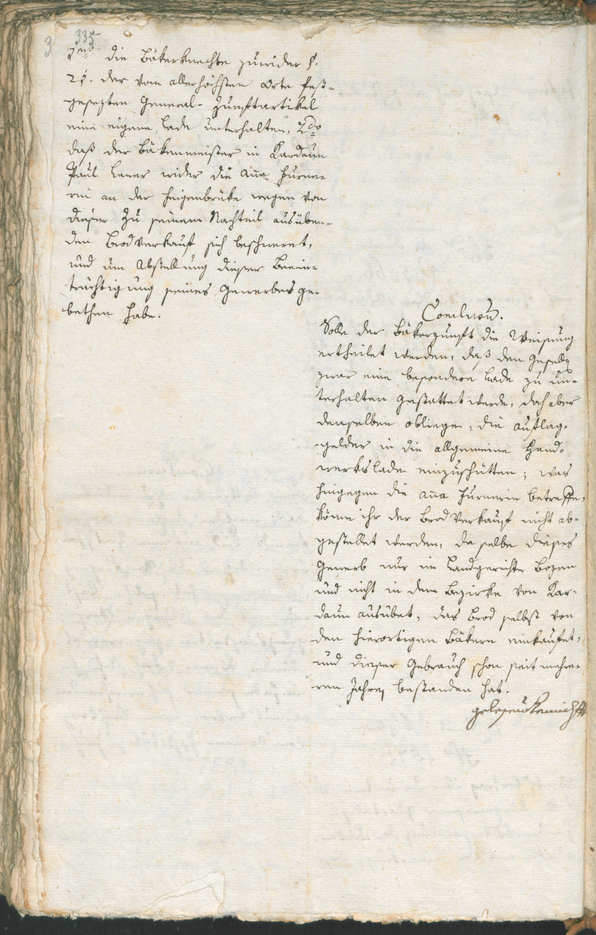 335
1mo die Bäkerknechte zuwider §.
21. der vom allerhöchsten Orte fest-
gesezten General-Zunftartikel
eine eigene Lade unterhalten, 2do
daß der Bäkenmeister in Kardaun
Paul Laner wider die Ana Furne-
rin an der Feigenbrüke wegen von
dieser zu seinem Nachteil ausüben-
den Brodverkauf sich beschweret,
und um Abstellung dieser Beein-
trächtigung seines Gewerbes ge-
bethen habe.
Conclusum.
Solle der Bäkerzunft die Weisung
ertheilet werden, daß den Gesellen
zwar eine besondere Lade zu un-
terhalten gestattet werde, daß aber
denselben obliege, die Auflag-
gelder in die allgemeine Hand-
werkslade einzuschütten; was
hingegen die Ana Furnerin betreffe,
könne ihr der Brodverkauf nicht ab-
gestellet werden, da selbe dieses
Gewerb nur im Landgerichte Bozen
und nicht in dem Bezirke von Kar-
daun ausübet, das Brod selbst von
den hierortigen Bäkern einkaufet,
und dieser Gebrauch schon seit mehre-
ren Jahren bestanden hat.